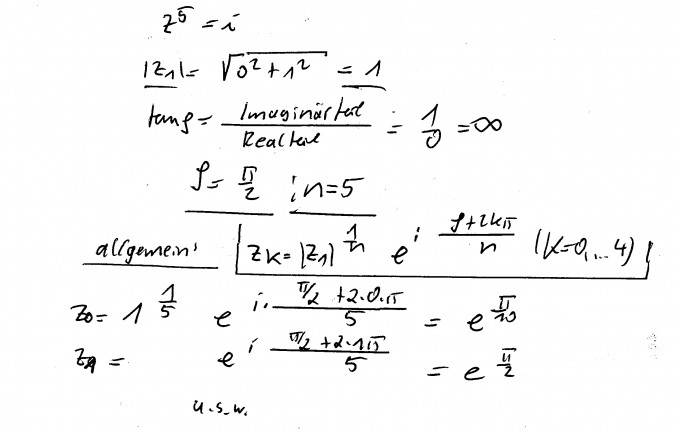 z⁵ = i
|z₁| = √(0² + 1²) = 1
tan φ = Imaginärteil / Realteil = 1/0 = ∞
φ = π/2 ; n = 5
allgemein: z_k = |z₁|^(1/n) e^(i (φ+2kπ)/n) (k=0,...4)
z₀ = 1^(1/5) e^(i · (π/2 + 2·0·π)/5) = e^(π/10)
z₁ = e^(i (π/2 + 2·1π)/5) = e^(π/2)
u.s.w.